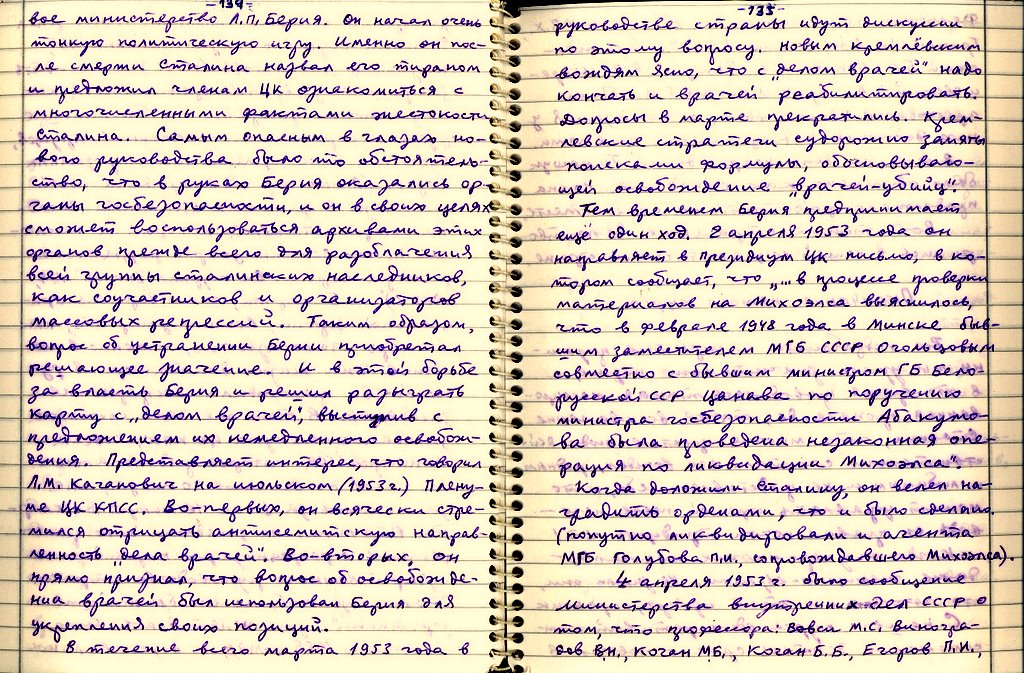 -134-
вое министерство Л.П. Берия. Он начал очень
тонкую политическую игру. Именно он пос-
ле смерти Сталина назвал его тираном
и предложил членам ЦК ознакомиться с
многочисленными фактами жестокости
Сталина. Самым опасным в глазах но-
вого руководства было то обстоятель-
ство, что в руках Берия оказались ор-
ганы госбезопасности, и он в своих целях
сможет воспользоваться архивами этих
органов прежде всего для разоблачения
всей группы сталинских наследников,
как соучастников и организаторов
массовых репрессий. Таким образом,
вопрос об устранении Берии приобретал
решающее значение. И в этой борьбе
за власть Берия и решил разыграть
карту с „делом врачей", выступив с
предложением их немедленного освобож-
дения. Представляет интерес, что говорил
Л.М. Каганович на июльском (1953 г.) Плену-
ме ЦК КПСС. Во-первых, он всячески стре-
мился отрицать антисемитскую направ-
ленность „дела врачей". Во-вторых, он
прямо признал, что вопрос об освобожде-
нии врачей был использован Берия для
укрепления своих позиций.
В течение всего марта 1953 года в
-135-
руководстве страны идут дискуссии
по этому вопросу. Новым кремлёвским
вождям ясно, что с „делом врачей" надо
кончать и врачей реабилитировать.
Допросы в марте прекратились. Крем-
левские стратеги судорожно заняты
поисками формулы, обосновываю-
щей освобождение „врачей-убийц".
Тем временем Берия предпринимает
ещё один ход. 2 апреля 1953 года он
направляет в президиум ЦК письмо, в ко-
тором сообщает, что „... в процессе проверки
материалов на Михоэлса выяснилось,
что в феврале 1948 года в Минске быв-
шим заместителем МГБ СССР Огольцовым
совместно с бывшим министром ГБ Бело-
русской ССР Цанава по поручению
министра госбезопасности Абакумо-
ва была проведена незаконная опе-
рация по ликвидации Михоэлса".
Когда доложили Сталину, он велел на-
градить орденами, что и было сделано.
(попутно ликвидировали и агента
МГБ Голубова П.И., сопровождавшего Михоэлса).
4 апреля 1953 г. было сообщение
Министерства внутренних дел СССР о
том, что профессора: Вовси М.С. Виногра-
дов В.Н., Коган М.Б., Коган Б.Б., Егоров П.И.,